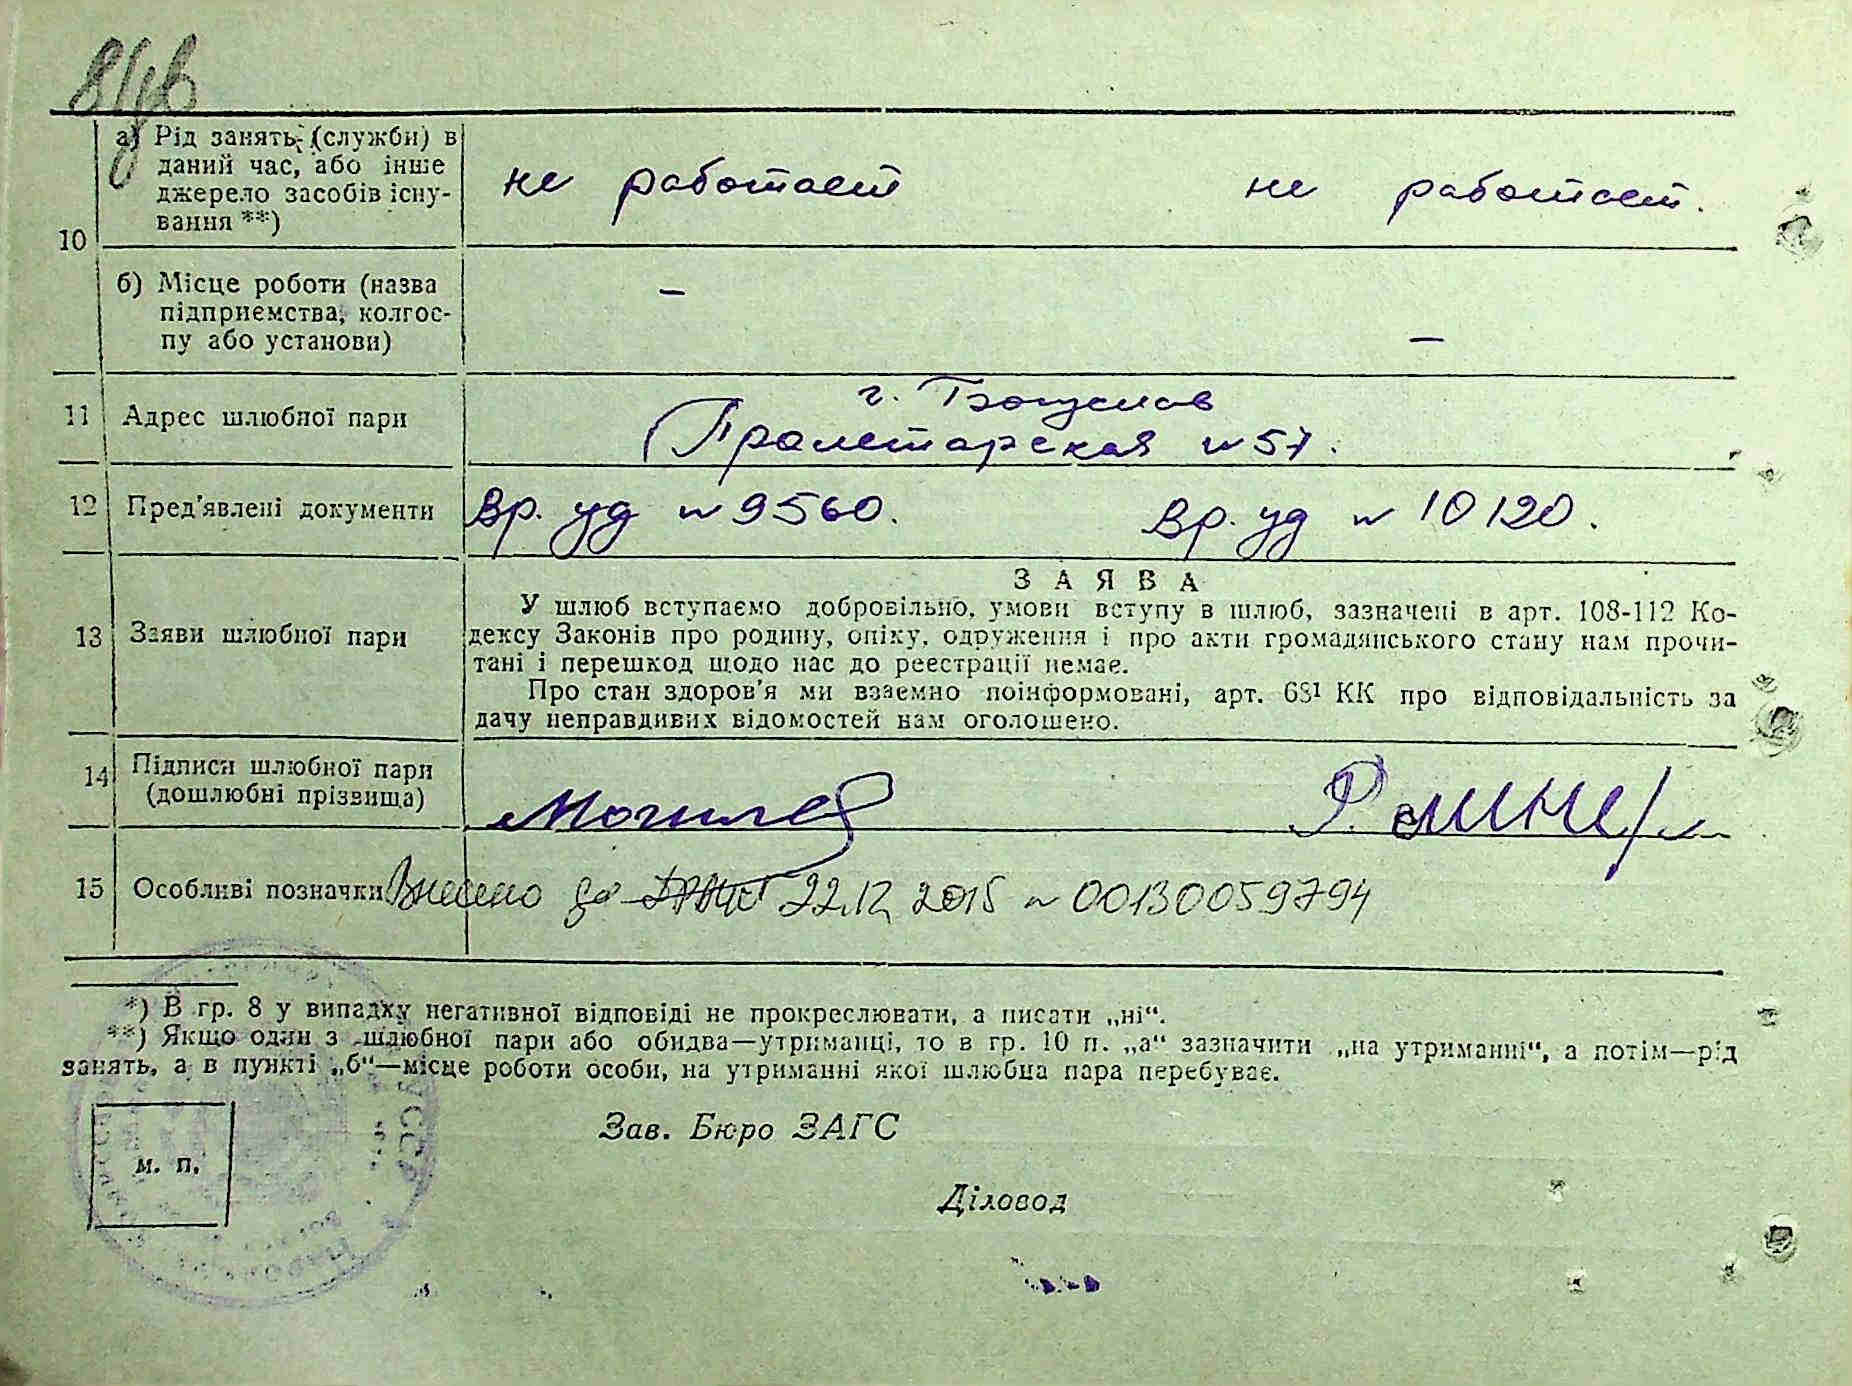 10
а) Рід занять, (служби) в
даний час, або інше
джерело засобів існу-
вання **)
не работает
не работает.
б) Місце роботи (назва
підприємства, колгос-
пу або установи)
–
–
11 Адрес шлюбної пари
г. Богуслав
Пролетарская №57.
12 Пред'явлені документи
Вр. уд №9560.
Вр. уд № 10120.
13 Заяви шлюбної пари
ЗАЯВА
У шлюб вступаємо добровільно, умови вступу в шлюб, зазначені в арт. 108-112 Ко-
дексу Законів про родину, опіку, одруження і про акти громадянського стану нам прочи-
тані і перешкод щодо нас до реестрації немає.
Про стан здоров'я ми взаємно поінформовані, арт. 68¹ КК про відповідальність за
дачу неправдивих відомостей нам оголошено.
14 Підписи шлюбної пари
(дошлюбні прізвища)
15 Особливі позначки
Внесено до 22.12 2015 № 00130059794
*) В гр. 8 у випадку негативної відповіді не прокреслювати, а писати „ні“.
**) Якщо один з шлюбної пари або обидва—утриманці, то в гр. 10 п. „а“ зазначити „на утриманні“, а потім—рід
занять, а в пункті „б“—місце роботи особи, на утриманні якої шлюбна пара перебуває.
Зав. Бюро ЗАГС
м. п.
Діловод